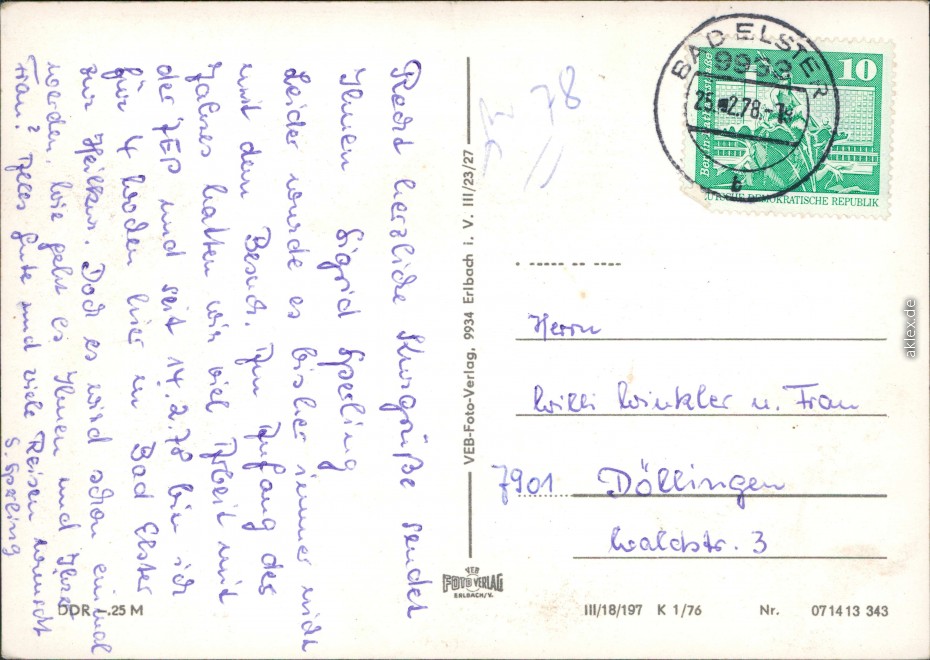 Recht herzliche Kurgrüße sendet
Ihnen Sigrid Sperling
Leider wurde es bisher immer nicht
mit dem Besuch. Am Anfang des
Jahres hatten wir viel Arbeit mit
der JEP und seit 14.2.78 bin ich
für 4 Wochen hier in Bad Elster
zur Heilkur. Doch es wird schon einmal
werden. Wie geht es Ihnen und Ihrer
Frau? Alles Gute und viele Reisen wünscht
S. Sperling
DDR -.25 M
VEB-Foto-Verlag, 9934 Erlbach i. V. III/23/27
VEB
FOTO VERLAG
ERLBACH/V.
78
BAD ELSTER
9933
25.-2.78
b
10
Berlin
DEUTSCHE DEMOKRATISCHE REPUBLIK
Herrn
Willi Winkler u. Frau
7901 Döllingen
Waldstr. 3
III/18/197 K 1/76 Nr. 071413 343
aklex.de